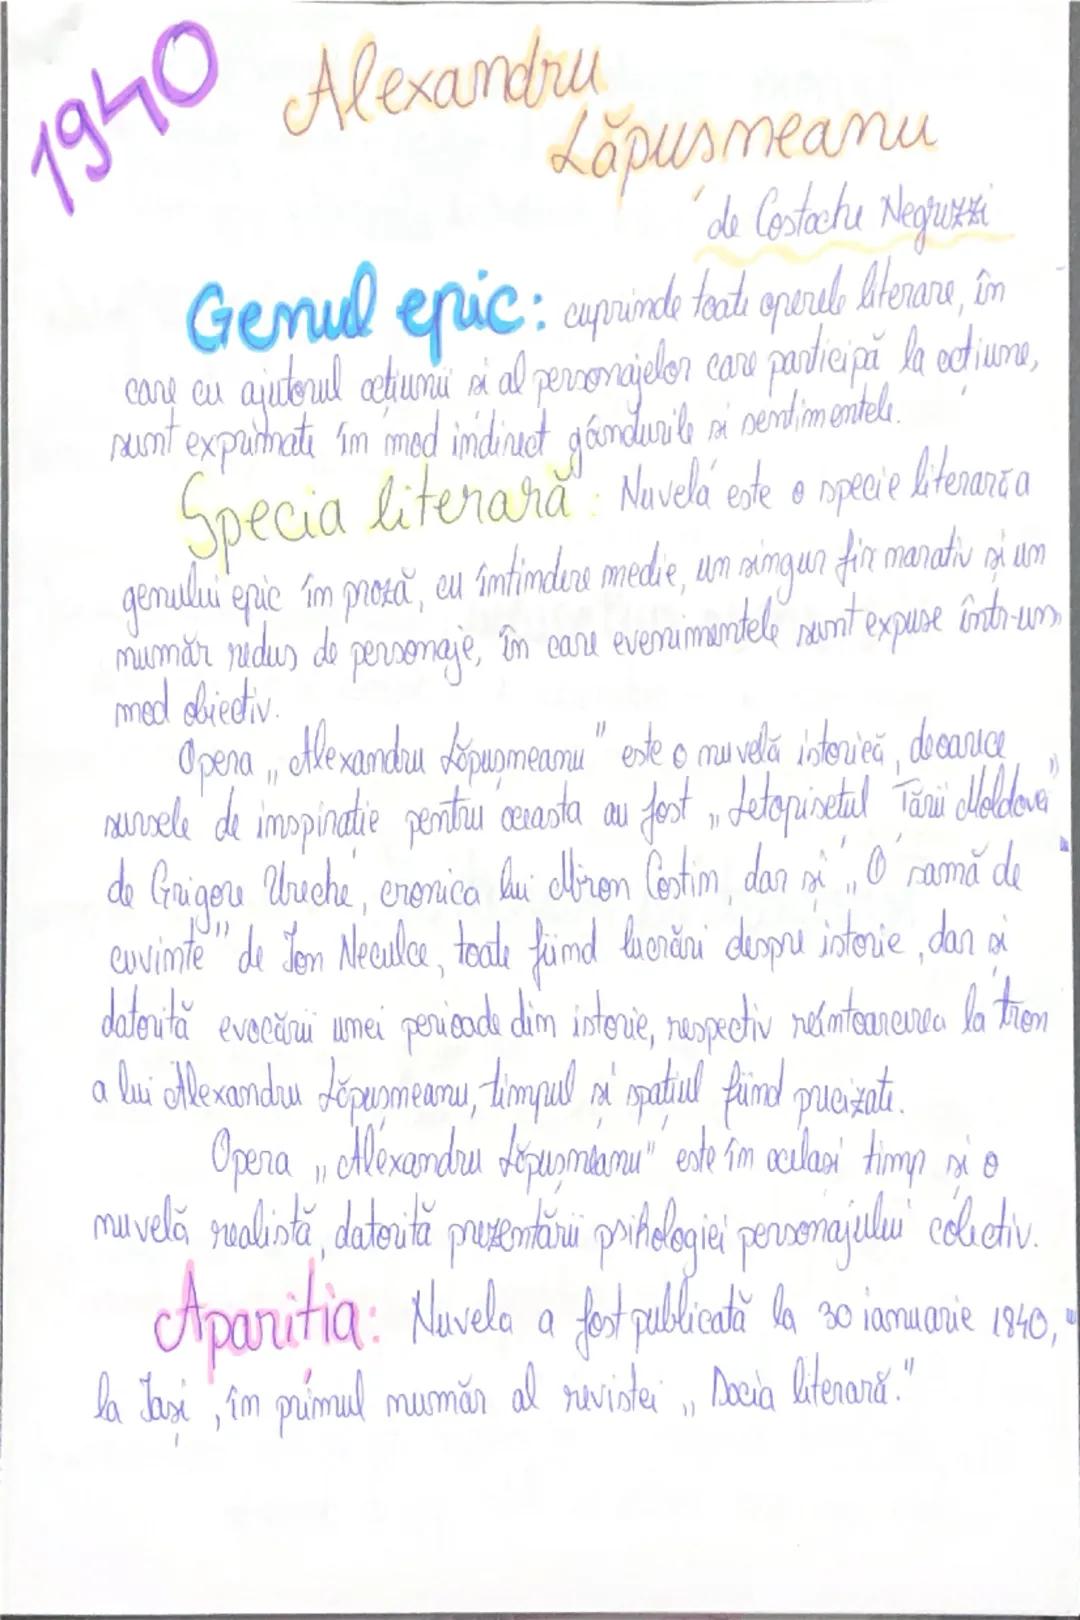 1940
Alexandru
Lăpușneanu
de Costache Negruzzi
Genul epic: cuprinde toate operele literare, în
care cu ajutorul acțiunii și al personajelor care participă la acțiune,
sunt exprimate în mod indirect gândurile și sentimentele.
Specia literară: Nuvela este o specie literară a
genului epic în proză, cu întindere medie, un singur fir narativ și un
număr redus de personaje, în care evenimentele sunt expuse într-un
mod obiectiv.
Opera „Alexandru Lăpușneanu" este o nuvelă istorică, deoarece
sursele de inspirație pentru aceasta au fost „Letopisețul Țării Moldovei"
de Grigore Ureche, cronica lui Miron Costin, dar și „O samă de
cuvinte" de Ion Neculce, toate fiind lucrări despre istorie, dar și
datorită evocării unei perioade din istorie, respectiv reîntoarcerea la tron
a lui Alexandru Lăpușneanu, timpul și spațiul fiind precizate.
Opera „Alexandru Lăpușneanu" este în același timp și o
nuvelă realistă, datorită prezentării psihologiei personajului colectiv.
Apariția: Nuvela a fost publicată la 30 ianuarie 1840,
la Iași, în primul număr al revistei „Dacia literară."